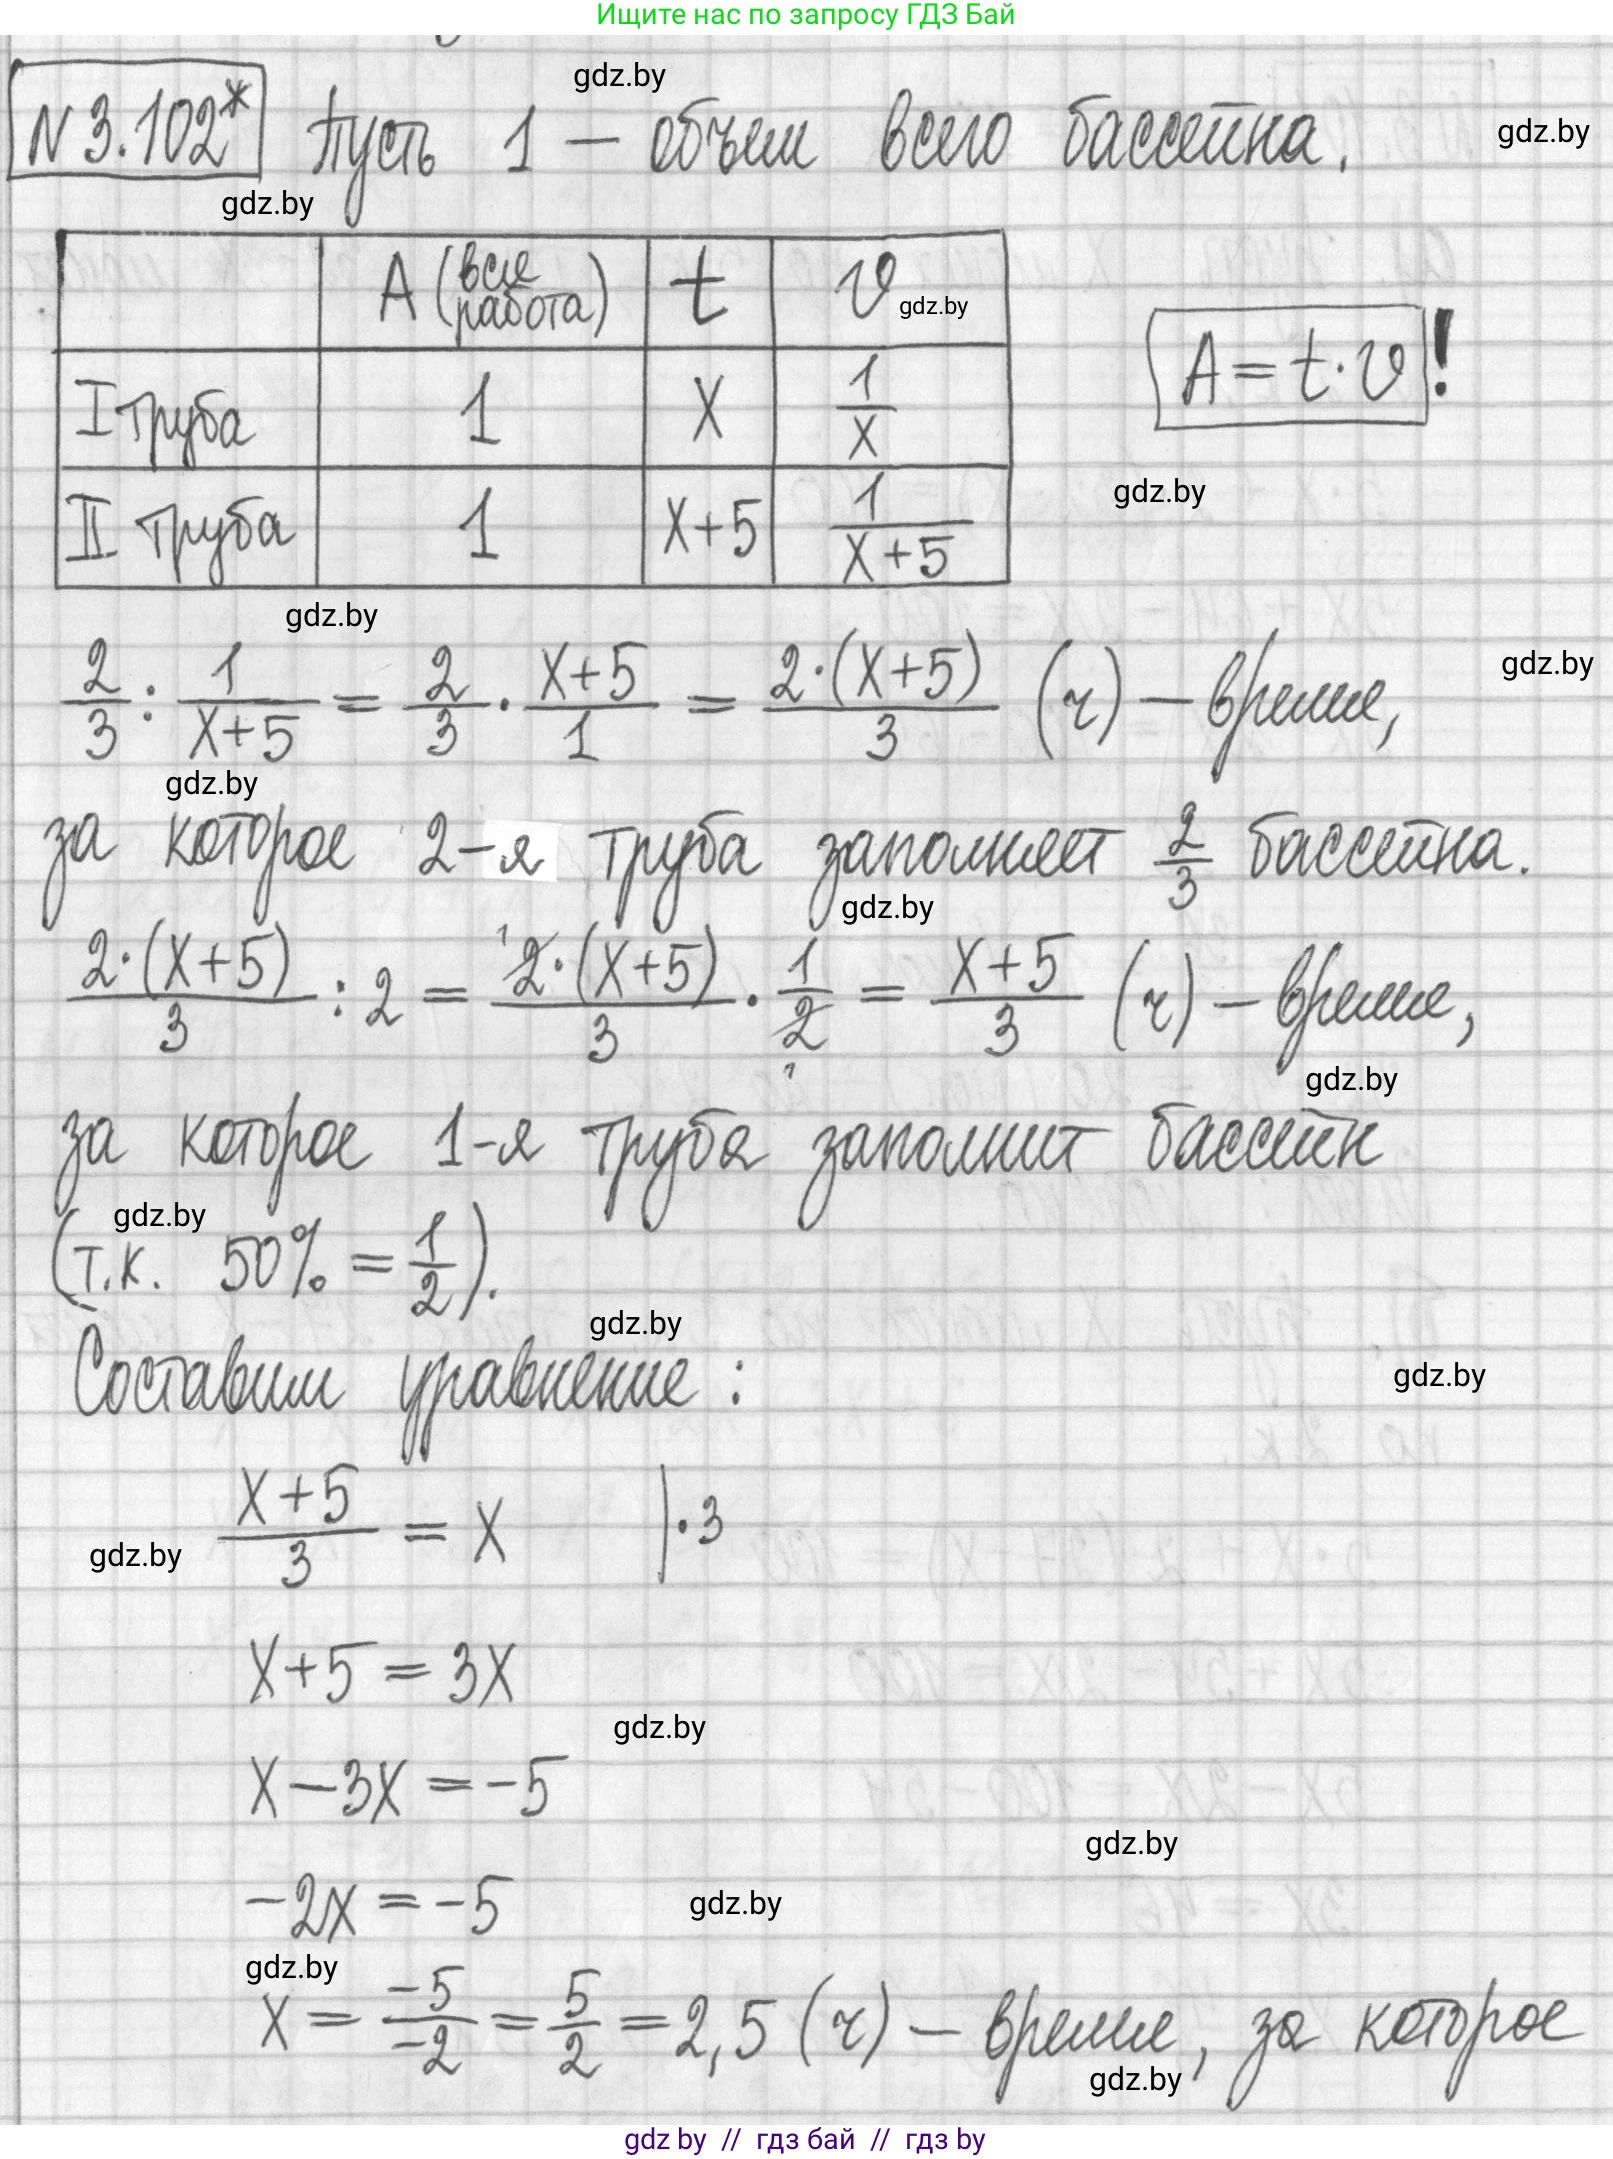 Ищите нас по запросу ГДЗ Бай
gdz.by
N 3.102* Пусть 1 – объем всего бассейна.
gdz.by
gdz.by
A (вся работа) t v
gdz.by
I труба 1 x 1/x
A = t · v !
gdz.by
II труба 1 x+5 1/(x+5)
gdz.by
2/3 : 1/(x+5) = 2/3 · (x+5)/1 = 2·(x+5)/3 (ч) – время,
gdz.by
gdz.by
за которое 2-я труба заполняет 2/3 бассейна.
gdz.by
2·(x+5)/3 : 2 = 2·(x+5)/3 · 1/2 = (x+5)/3 (ч) – время,
gdz.by
за которое 1-я труба заполнит бассейн
gdz.by
(т.к. 50% = 1/2).
gdz.by
Составим уравнение:
gdz.by
(x+5)/3 = x |·3
gdz.by
x+5 = 3x
gdz.by
x – 3x = –5
gdz.by
–2x = –5
gdz.by
gdz.by
x = –5/–2 = 5/2 = 2,5 (ч) – время, за которое
gdz.by
gdz by // гдз бай // гдз by